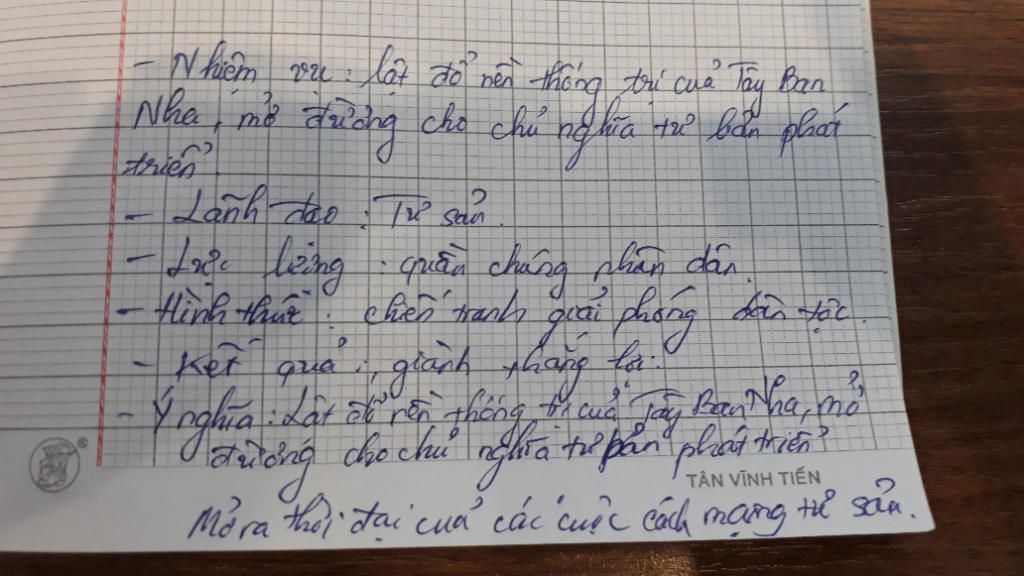 - Nhiệm vụ: lật đổ nền thống trị của Tây Ban
Nha, mở đường cho chủ nghĩa tư bản phát
triển.
- Lãnh đạo: Tư sản.
- Lực lượng: quần chúng nhân dân.
- Hình thức: chiến tranh giải phóng dân tộc.
- Kết quả: giành thắng lợi.
- Ý nghĩa: Lật đổ nền thống trị của Tây Ban Nha, mở
đường cho chủ nghĩa tư bản phát triển
TÂN VĨNH TIẾN
Mở ra thời đại của các cuộc cách mạng tư sản.